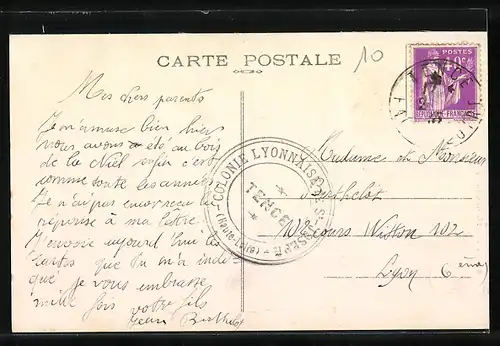 CARTE POSTALE
10
Mes chers parents
Je m'amuse bien hier
nous avons été au bois
de la Niel
comme toute les années
Je n'ai pas encore reçu la
réponse à ma lettre.
J'envoie aujourd'hui les
cartes que tu m'a indi-
que, je vous embrasse
mille fois votre fils
Jean Berthelot
COLONIE LYONNAISE DE
(Haute-Loire)
Madame et Monsieur
Berthelot
Cours Vitton 102
Lyon (6ème)
40c
REPUBLIQUE FRANÇAISE